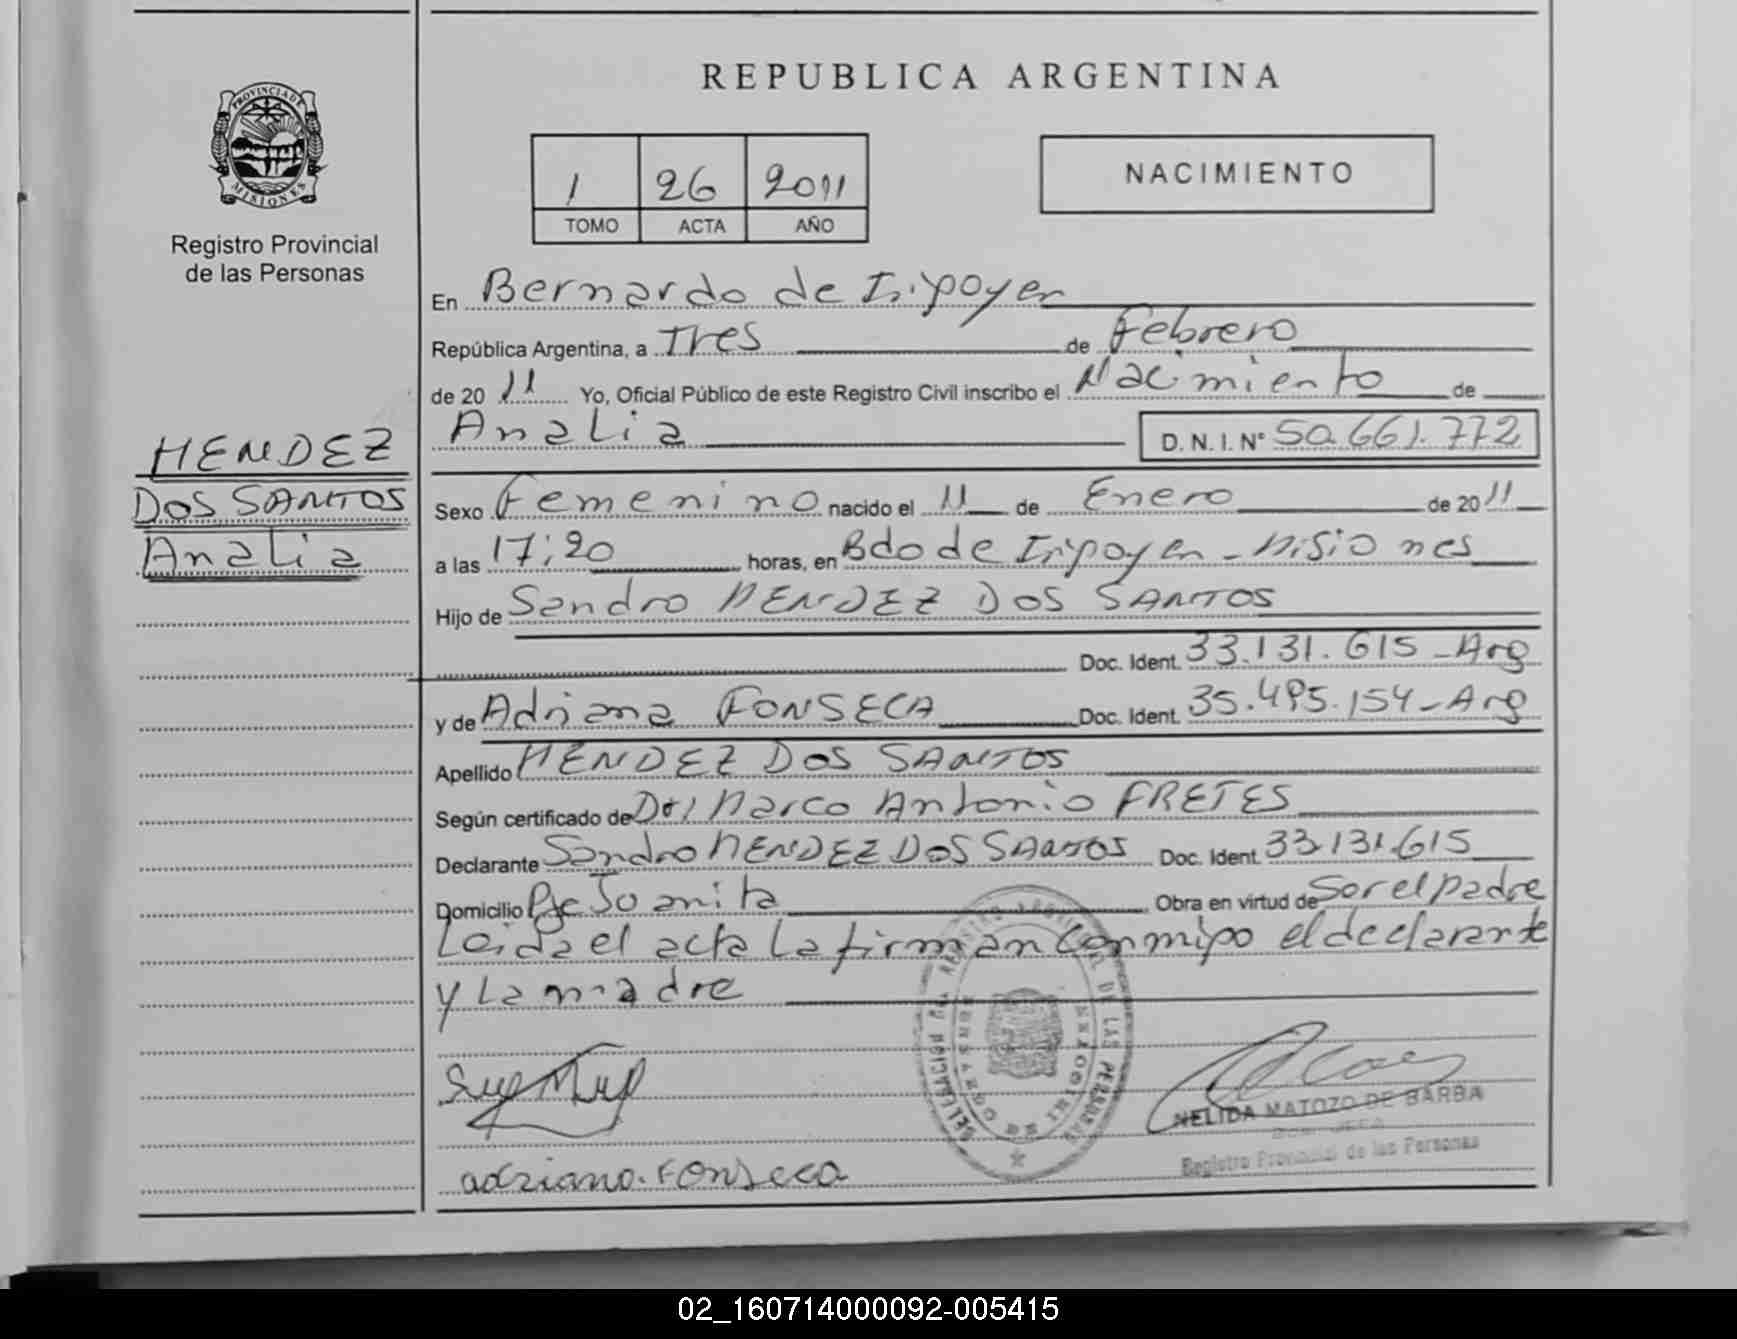 REPUBLICA ARGENTINA
PROVINCIA DE
MISIONES
Registro Provincial
de las Personas
1 26 2011
TOMO ACTA AÑO
NACIMIENTO
En Bernardo de Iripoyen
República Argentina, a Tres de Febrero
de 20 11 Yo, Oficial Público de este Registro Civil inscribo el Nacimiento de
Analia D. N. I. N° 50.661.772
MENDEZ
DOS SANTOS
Analia
Sexo Femenino nacido el 11 de Enero de 20 11
a las 17:20 horas, en Bdo de Iripoyen - Misiones
Hijo de Sandro MENDEZ DOS SANTOS
Doc. Ident. 33.131.615 - Arg
y de Adriana FONSECA Doc. Ident. 35.495.154 - Arg
Apellido MENDEZ DOS SANTOS
Según certificado de Marco Antonio FRETES
Declarante Sandro MENDEZ DOS SANTOS Doc. Ident. 33.131.615
Domicilio Juanita Obra en virtud de Ser el padre
Leida el acta la firman conmigo el declarante
y la madre
adriana. Fonseca
NELIDA MATOZO DE BARBA
Registro Provincial de las Personas
02_160714000092-005415